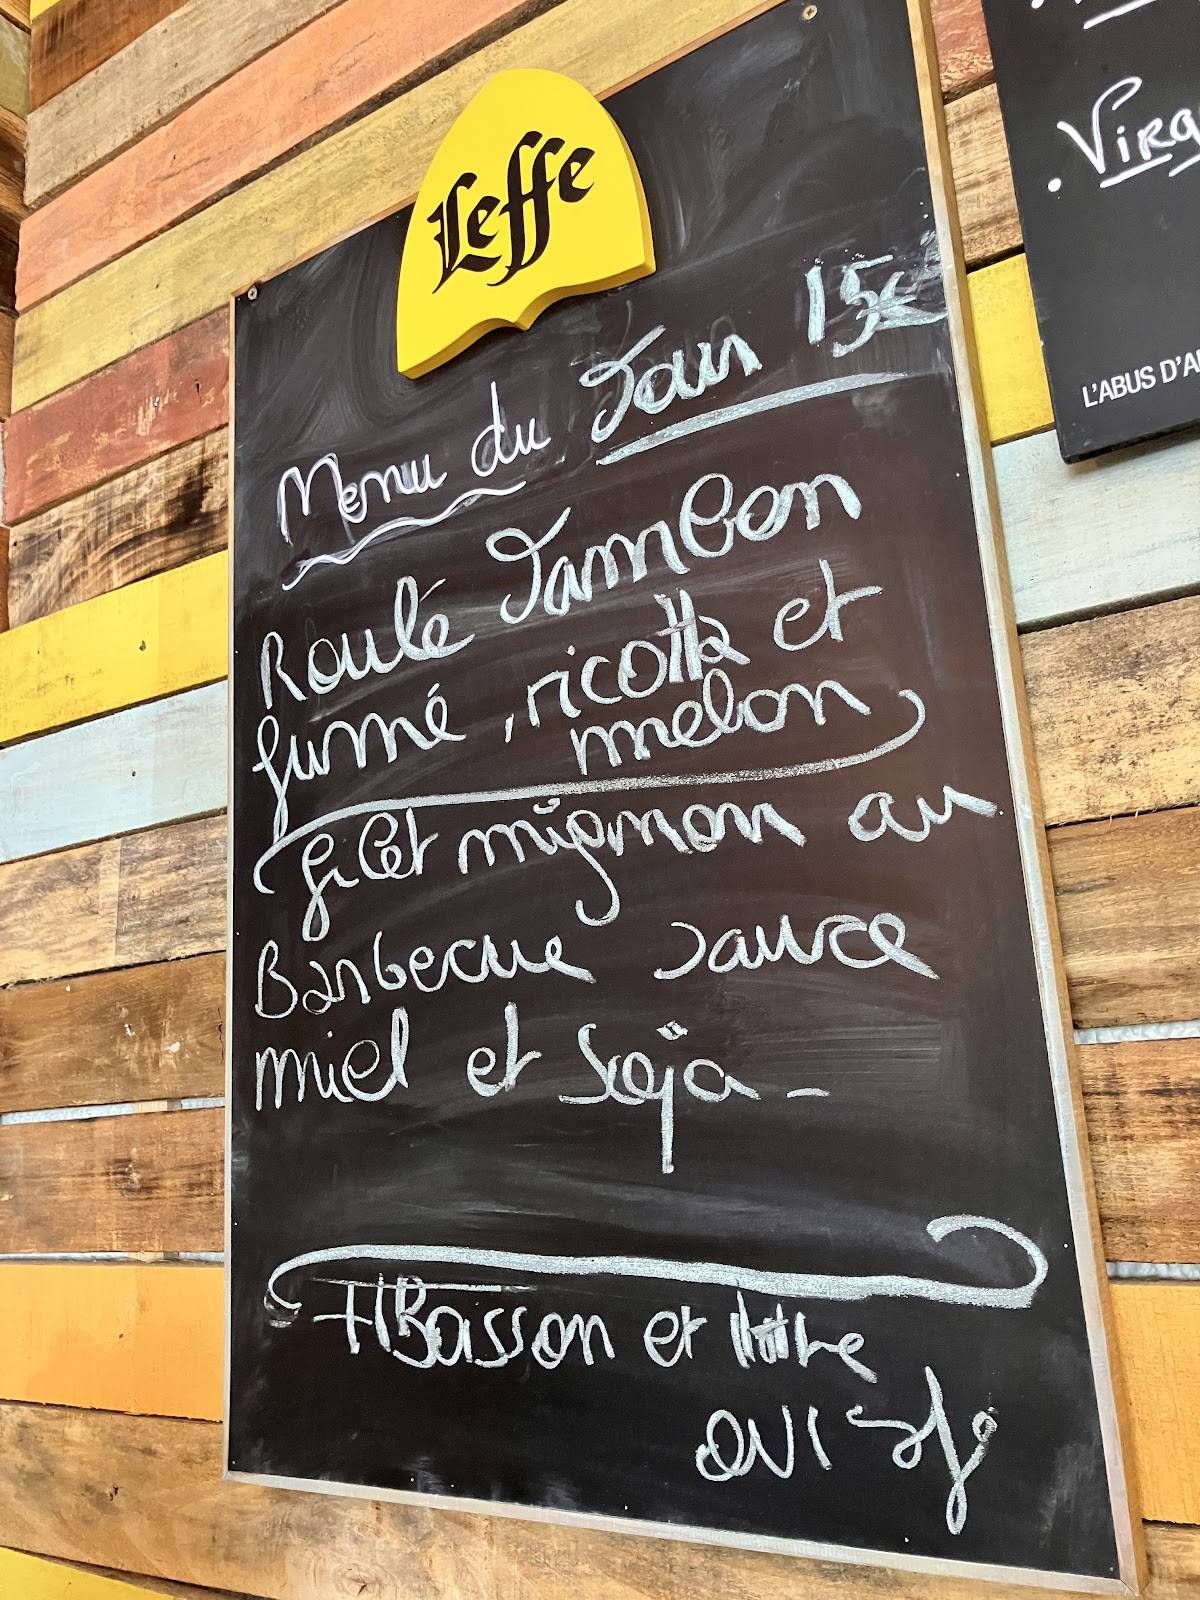 Leffe
Menu du Jour 15€
Roulé Jambon
fumé, ricotta et
melon
filet mignon au
Barbecue sauce
miel et soja -
Boisson et
. Vira
L'ABUS D'A